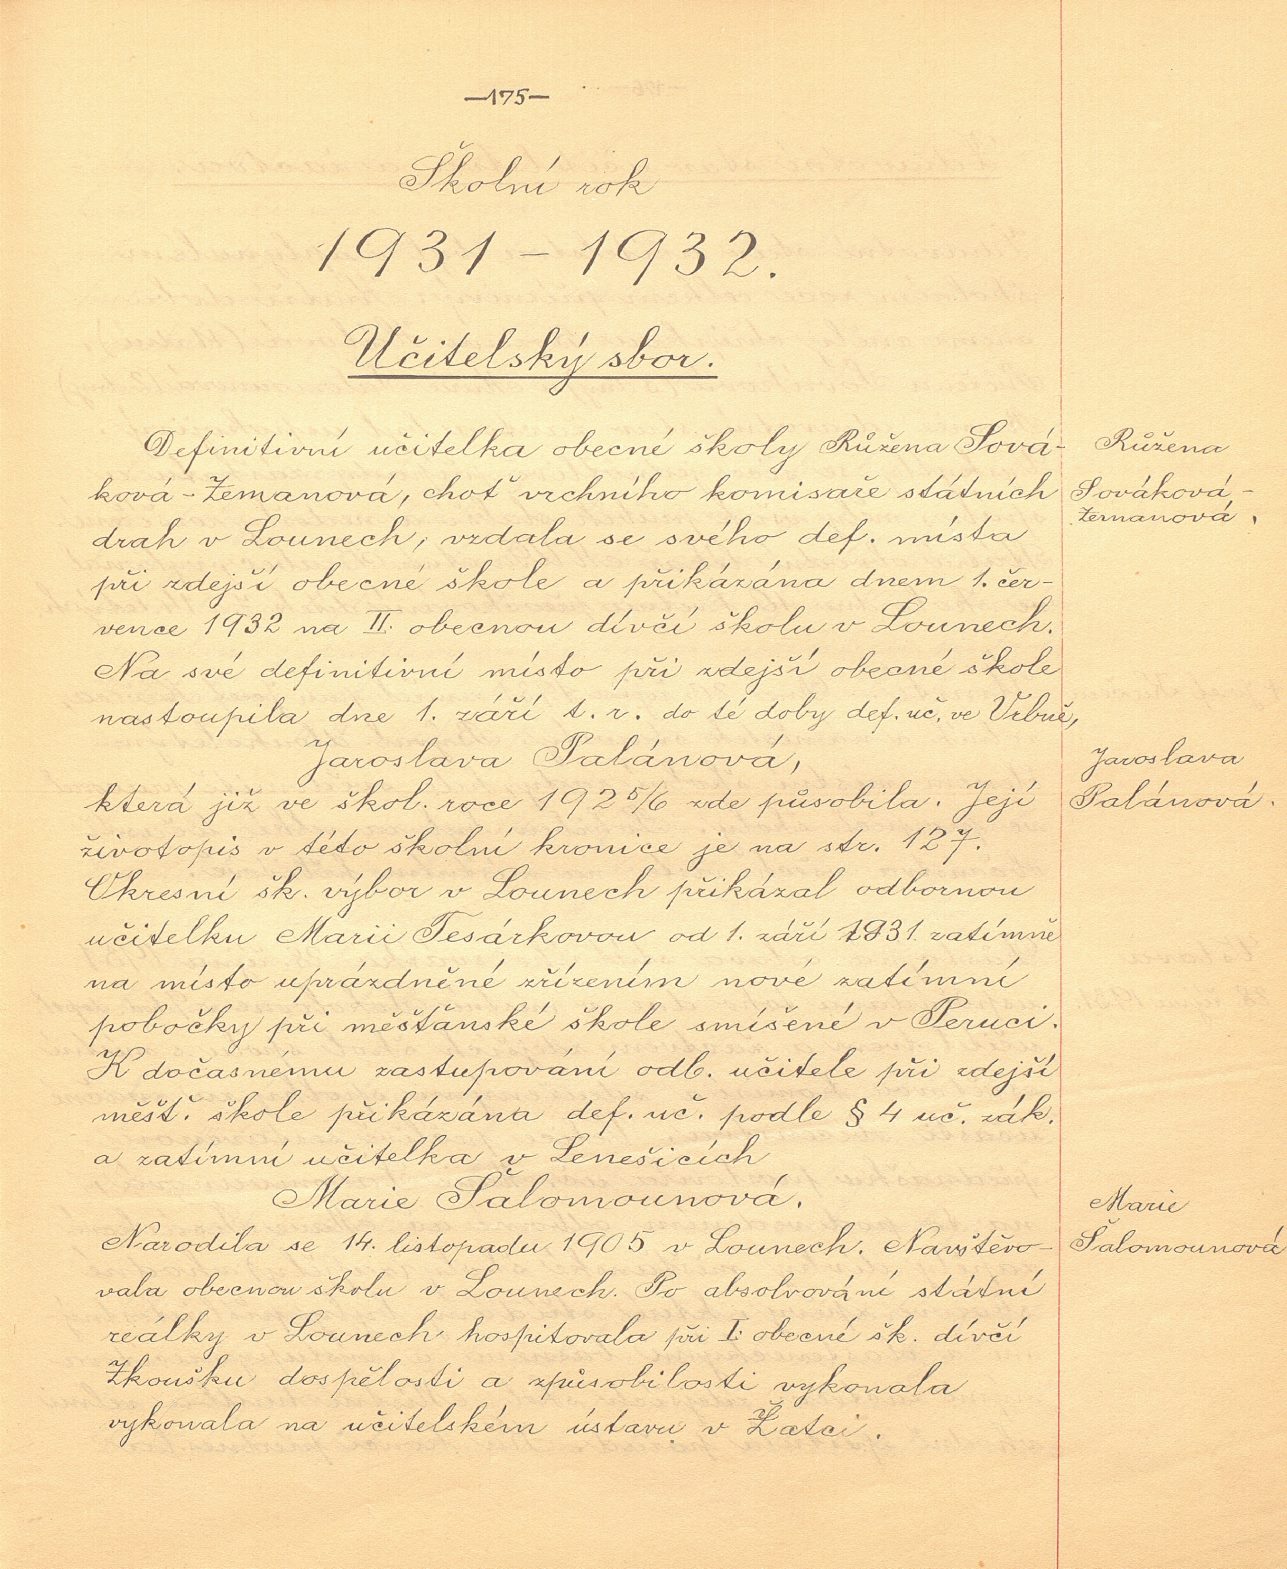 —175—
Školní rok
1931 – 1932.
Učitelský sbor.
Definitivní učitelka obecné školy Růžena Sová-
ková-Zemanová, choť vrchního komisaře státních
drah v Lounech, vzdala se svého def. místa
při zdejší obecné škole a přikázána dnem 1. čer-
vence 1932 na II. obecnou dívčí školu v Lounech.
Na své definitivní místo při zdejší obecné škole
nastoupila dne 1. září t. r. do té doby def. uč. ve Vrbně,
Jaroslava Palánová,
která již ve škol. roce 1925/6 zde působila. Její
životopis v této školní kronice je na str. 127.
Okresní šk. výbor v Lounech přikázal odbornou
učitelku Marii Tesárkovou od 1. září 1931 zatímně
na místo uprázdněné zřízením nové zatímní
pobočky při měšťanské škole smíšené v Peruci.
K dočasnému zastupování odb. učitele při zdejší
měšť. škole přikázána def. uč. podle § 4 uč. zák.
a zatímní učitelka v Lenešicích
Marie Šalomounová.
Narodila se 14. listopadu 1905 v Lounech. Navštěvo-
vala obecnou školu v Lounech. Po absolvování státní
reálky v Lounech hospitovala při I. obecné šk. dívčí
Zkoušku dospělosti a způsobilosti vykonala
vykonala na učitelském ústavu v Žatci.
Růžena
Sováková-
Zemanová.
Jaroslava
Palánová.
Marie
Šalomounová